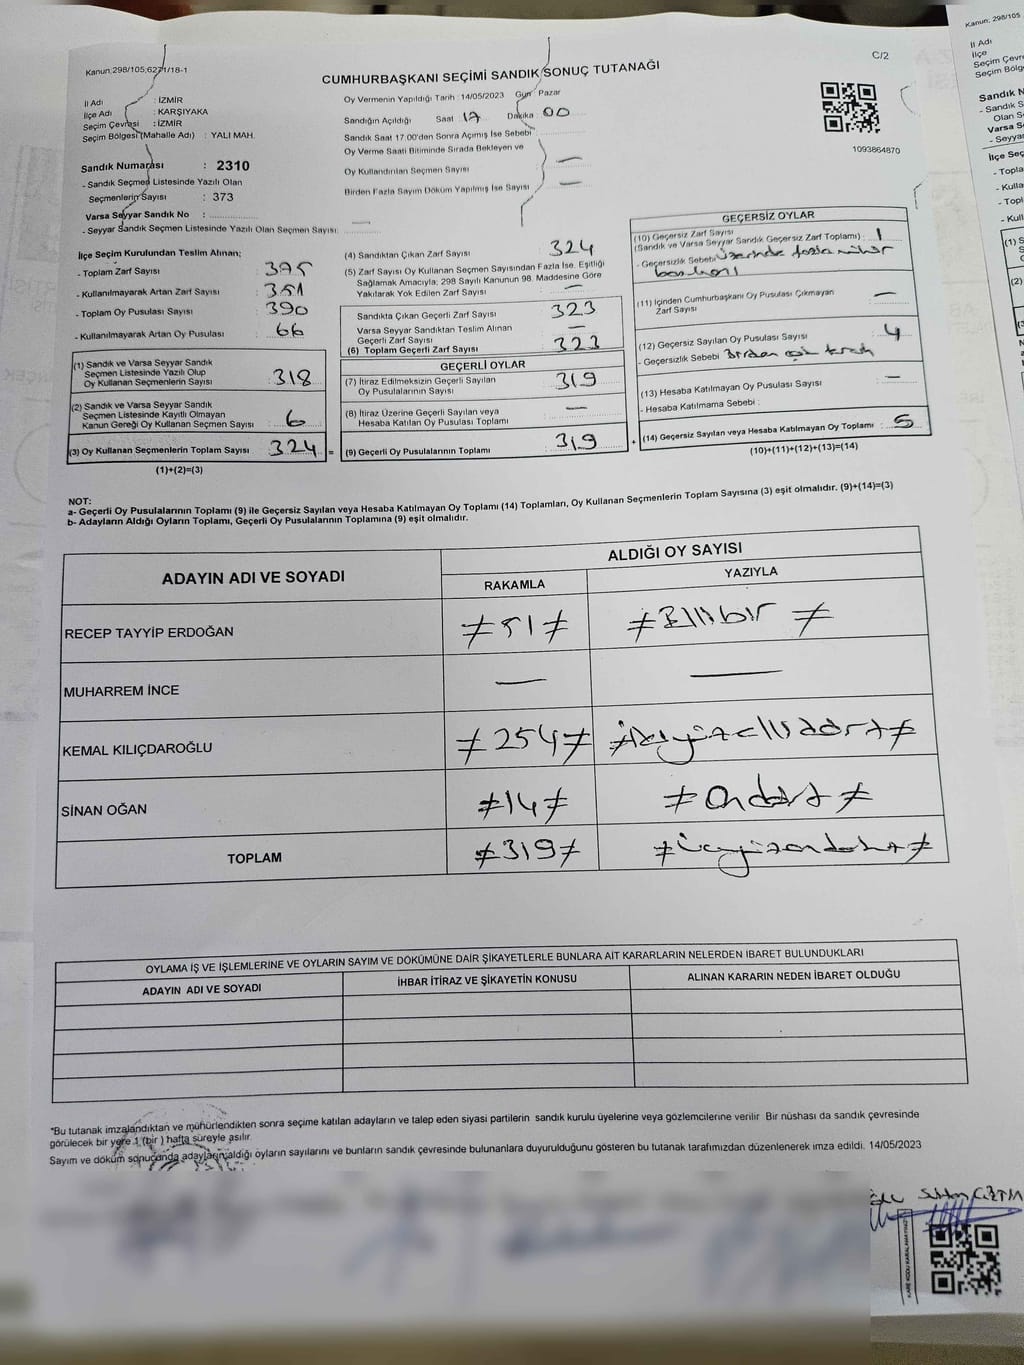 Kanun:298/105;6271/18-1
C/2
CUMHURBAŞKANI SEÇİMİ SANDIK SONUÇ TUTANAĞI
İl Adı : İZMİR
İlçe Adı : KARŞIYAKA
Seçim Çevresi : İZMİR
Seçim Bölgesi (Mahalle Adı) : YALI MAH.
Sandık Numarası : 2310
- Sandık Seçmen Listesinde Yazılı Olan
Seçmenlerin Sayısı : 373
Varsa Seyyar Sandık No :
- Seyyar Sandık Seçmen Listesinde Yazılı Olan Seçmen Sayısı: —
Oy Vermenin Yapıldığı Tarih : 14/05/2023 Gün : Pazar
Sandığın Açıldığı Saat : 17 Dakika : 00
Sandık Saat 17:00'den Sonra Açımış İse Sebebi :
Oy Verme Saati Bitiminde Sırada Bekleyen ve
Oy Kullandırılan Seçmen Sayısı : —
Birden Fazla Sayım Döküm Yapılmış İse Sayısı : —
1093864870
İlçe Seçim Kurulundan Teslim Alınan;
- Toplam Zarf Sayısı : 375
- Kullanılmayarak Artan Zarf Sayısı : 351
- Toplam Oy Pusulası Sayısı : 390
- Kullanılmayarak Artan Oy Pusulası : 66
(1) Sandık ve Varsa Seyyar Sandık
Seçmen Listesinde Yazılı Olup
Oy Kullanan Seçmenlerin Sayısı : 318
(2) Sandık ve Varsa Seyyar Sandık
Seçmen Listesinde Kayıtlı Olmayan
Kanun Gereği Oy Kullanan Seçmen Sayısı : 6
(3) Oy Kullanan Seçmenlerin Toplam Sayısı : 324 =
(1)+(2)=(3)
(4) Sandıktan Çıkan Zarf Sayısı : 324
(5) Zarf Sayısı Oy Kullanan Seçmen Sayısından Fazla İse, Eşitliği
Sağlamak Amacıyla; 298 Sayılı Kanunun 98. Maddesine Göre
Yakılarak Yok Edilen Zarf Sayısı : —
Sandıkta Çıkan Geçerli Zarf Sayısı : 323
Varsa Seyyar Sandıktan Teslim Alınan
Geçerli Zarf Sayısı : —
(6) Toplam Geçerli Zarf Sayısı : 323
GEÇERLİ OYLAR
(7) İtiraz Edilmeksizin Geçerli Sayılan
Oy Pusulalarının Sayısı : 319
(8) İtiraz Üzerine Geçerli Sayılan veya
Hesaba Katılan Oy Pusulası Toplamı : —
(9) Geçerli Oy Pusulalarının Toplamı : 319 +
GEÇERSİZ OYLAR
(10) Geçersiz Zarf Sayısı
(Sandık ve Varsa Seyyar Sandık Geçersiz Zarf Toplamı) : 1
- Geçersizlik Sebebi : Üzerinde fazla mühür
(11) İçinden Cumhurbaşkanı Oy Pusulası Çıkmayan
Zarf Sayısı : —
(12) Geçersiz Sayılan Oy Pusulası Sayısı : 4
- Geçersizlik Sebebi : Birden çok tercih
(13) Hesaba Katılmayan Oy Pusulası Sayısı : —
- Hesaba Katılmama Sebebi :
(14) Geçersiz Sayılan veya Hesaba Katılmayan Oy Toplamı : 5
(10)+(11)+(12)+(13)=(14)
NOT:
a- Geçerli Oy Pusulalarının Toplamı (9) ile Geçersiz Sayılan veya Hesaba Katılmayan Oy Toplamı (14) Toplamları, Oy Kullanan Seçmenlerin Toplam Sayısına (3) eşit olmalıdır. (9)+(14)=(3)
b- Adayların Aldığı Oyların Toplamı, Geçerli Oy Pusulalarının Toplamına (9) eşit olmalıdır.
ADAYIN ADI VE SOYADI
ALDIĞI OY SAYISI
RAKAMLA YAZIYLA
RECEP TAYYİP ERDOĞAN ≠51≠ ≠Ellibir≠
MUHARREM İNCE — —
KEMAL KILIÇDAROĞLU ≠254≠ ≠ikiyüzellidört≠
SİNAN OĞAN ≠14≠ ≠Ondört≠
TOPLAM ≠319≠ ≠üçyüzondokuz≠
OYLAMA İŞ VE İŞLEMLERİNE VE OYLARIN SAYIM VE DÖKÜMÜNE DAİR ŞİKAYETLERLE BUNLARA AİT KARARLARIN NELERDEN İBARET BULUNDUKLARI
ADAYIN ADI VE SOYADI İHBAR İTİRAZ VE ŞİKAYETİN KONUSU ALINAN KARARIN NEDEN İBARET OLDUĞU
*Bu tutanak imzalandıktan ve mühürlendikten sonra seçime katılan adayların ve talep eden siyasi partilerin sandık kurulu üyelerine veya gözlemcilerine verilir Bir nüshası da sandık çevresinde
görülecek bir yere 1 (bir) hafta süreyle asılır.
Sayım ve döküm sonucunda adayların aldığı oyların sayılarını ve bunların sandık çevresinde bulunanlara duyurulduğunu gösteren bu tutanak tarafımızdan düzenlenerek imza edildi. 14/05/2023
KARE KODU KARALAMAYINIZ
Kanun: 298/105
İl Adı
İlçe
Sandık N
Varsa S
İlçe Seç